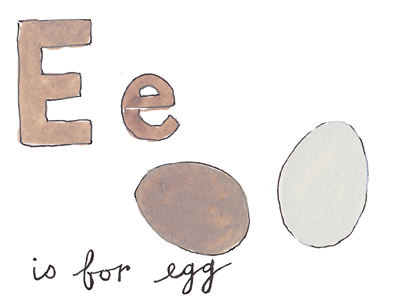 Ee
is for egg